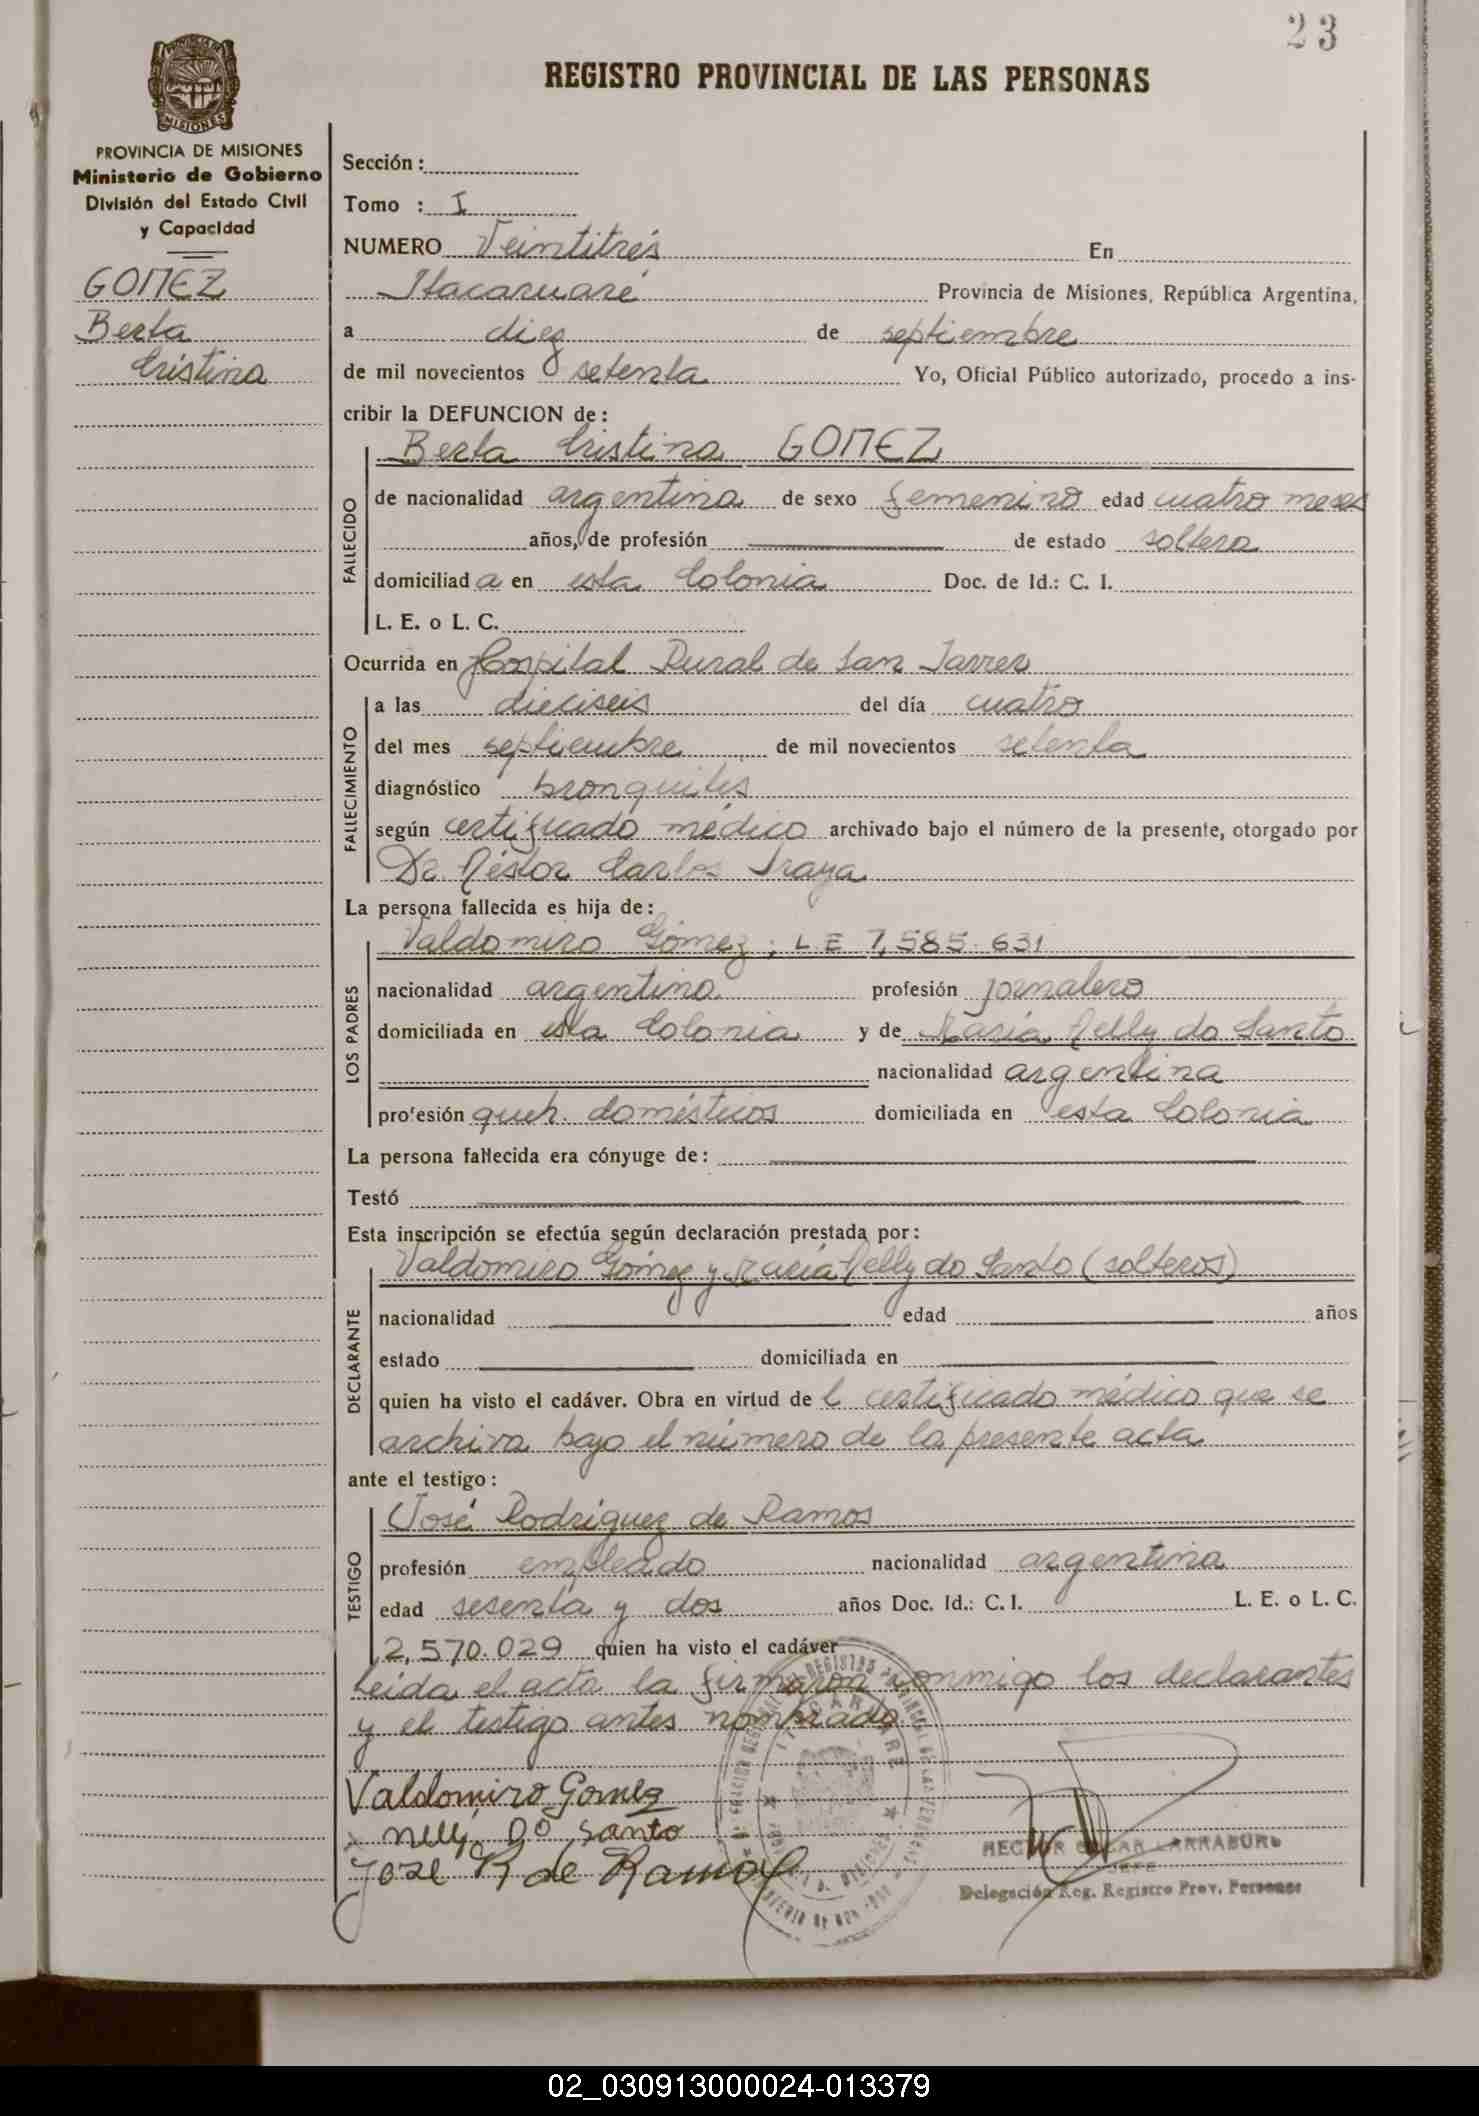 23
REGISTRO PROVINCIAL DE LAS PERSONAS
PROVINCIA DE
MISIONES
PROVINCIA DE MISIONES
Ministerio de Gobierno
División del Estado Civil
y Capacidad
GOMEZ
Berta
Cristina
Sección :
Tomo : I
NUMERO Veintitrés En
Itacaruaré Provincia de Misiones, República Argentina,
a diez de septiembre
de mil novecientos setenta Yo, Oficial Público autorizado, procedo a ins-
cribir la DEFUNCION de :
Berta Cristina GOMEZ
FALLECIDO
de nacionalidad argentina de sexo femenino edad cuatro meses
años, de profesión de estado soltera
domiciliada en esta Colonia Doc. de Id.: C. I.
L. E. o L. C.
Ocurrida en Hospital Rural de San Javier
FALLECIMIENTO
a las dieciseis del día cuatro
del mes septiembre de mil novecientos setenta
diagnóstico bronquitis
según certificado médico archivado bajo el número de la presente, otorgado por
Dr. Néstor Carlos Iraya
La persona fallecida es hija de :
LOS PADRES
Valdomiro Gómez ; L E 7,585.631
nacionalidad argentino profesión jornalero
domiciliada en esta Colonia y de María Nelly do Santo
nacionalidad argentina
profesión queh. domésticos domiciliada en esta Colonia
La persona fallecida era cónyuge de :
Testó
Esta inscripción se efectúa según declaración prestada por :
DECLARANTE
Valdomiro Gómez y María Nelly do Santo (solteros)
nacionalidad edad años
estado domiciliada en
quien ha visto el cadáver. Obra en virtud de l certificado médico que se
archiva bajo el número de la presente acta
ante el testigo :
TESTIGO
José Rodriguez de Ramos
profesión empleado nacionalidad argentina
edad sesenta y dos años Doc. Id.: C. I. L. E. o L. C.
2,570.029 quien ha visto el cadáver
Leida el acta la firmaron conmigo los declarantes
y el testigo antes nombrado
ITACARUARE
Valdomiro Gomez
nelly Do Santo
Jose R de Ramos
HECTOR OSCAR LARRABURU
JEFE
Delegación Reg. Registro Prov. Personas
02_030913000024-013379